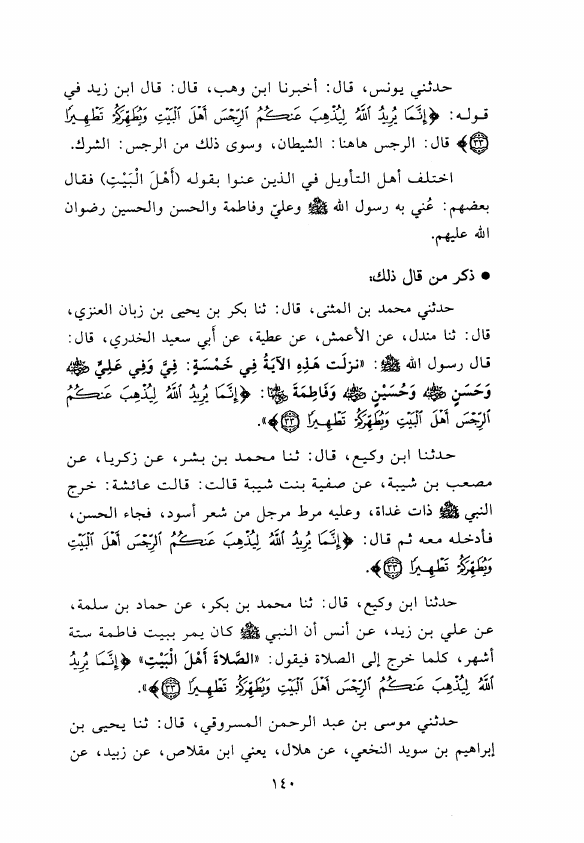 حدثني يونس، قال: أخبرنا ابن وهب، قال: قال ابن زيد في
قوله: ﴿إِنَّمَا يُرِيدُ اللَّهُ لِيُذْهِبَ عَنكُمُ الرِّجْسَ أَهْلَ الْبَيْتِ وَيُطَهِّرَكُمْ تَطْهِيرًا
﴿٣٣﴾﴾ قال: الرجس هاهنا: الشيطان، وسوى ذلك من الرجس: الشرك.
اختلف أهل التأويل في الذين عنوا بقوله (أَهْلَ الْبَيْتِ) فقال
بعضهم: عُني به رسول الله ﷺ وعليّ وفاطمة والحسن والحسين رضوان
الله عليهم.
● ذكر من قال ذلك:
حدثني محمد بن المثنى، قال: ثنا بكر بن يحيى بن زبان العنزي،
قال: ثنا مندل، عن الأعمش، عن عطية، عن أبي سعيد الخدري، قال:
قال رسول الله ﷺ: «نزلَت هَذِهِ الآيَةُ فِي خَمْسَةٍ: فِيَّ وَفِي عَلِيٍّ
وَحَسَنٍ وَحُسَيْنٍ وَفَاطِمَةَ: ﴿إِنَّمَا يُرِيدُ اللَّهُ لِيُذْهِبَ عَنكُمُ
الرِّجْسَ أَهْلَ الْبَيْتِ وَيُطَهِّرَكُمْ تَطْهِيرًا ﴿٣٣﴾﴾».
حدثنا ابن وكيع، قال: ثنا محمد بن بشر، عن زكريا، عن
مصعب بن شيبة، عن صفية بنت شيبة قالت: قالت عائشة: خرج
النبي ﷺ ذات غداة، وعليه مرط مرجل من شعر أسود، فجاء الحسن،
فأدخله معه ثم قال: ﴿إِنَّمَا يُرِيدُ اللَّهُ لِيُذْهِبَ عَنكُمُ الرِّجْسَ أَهْلَ الْبَيْتِ
وَيُطَهِّرَكُمْ تَطْهِيرًا ﴿٣٣﴾﴾.
حدثنا ابن وكيع، قال: ثنا محمد بن بكر، عن حماد بن سلمة،
عن علي بن زيد، عن أنس أن النبي ﷺ كان يمر ببيت فاطمة ستة
أشهر، كلما خرج إلى الصلاة فيقول: «الصَّلاةَ أَهْلَ الْبَيْتِ» ﴿إِنَّمَا يُرِيدُ
اللَّهُ لِيُذْهِبَ عَنكُمُ الرِّجْسَ أَهْلَ الْبَيْتِ وَيُطَهِّرَكُمْ تَطْهِيرًا ﴿٣٣﴾﴾».
حدثني موسى بن عبد الرحمن المسروقي، قال: ثنا يحيى بن
إبراهيم بن سويد النخعي، عن هلال، يعني ابن مقلاص، عن زبيد، عن
١٤٠